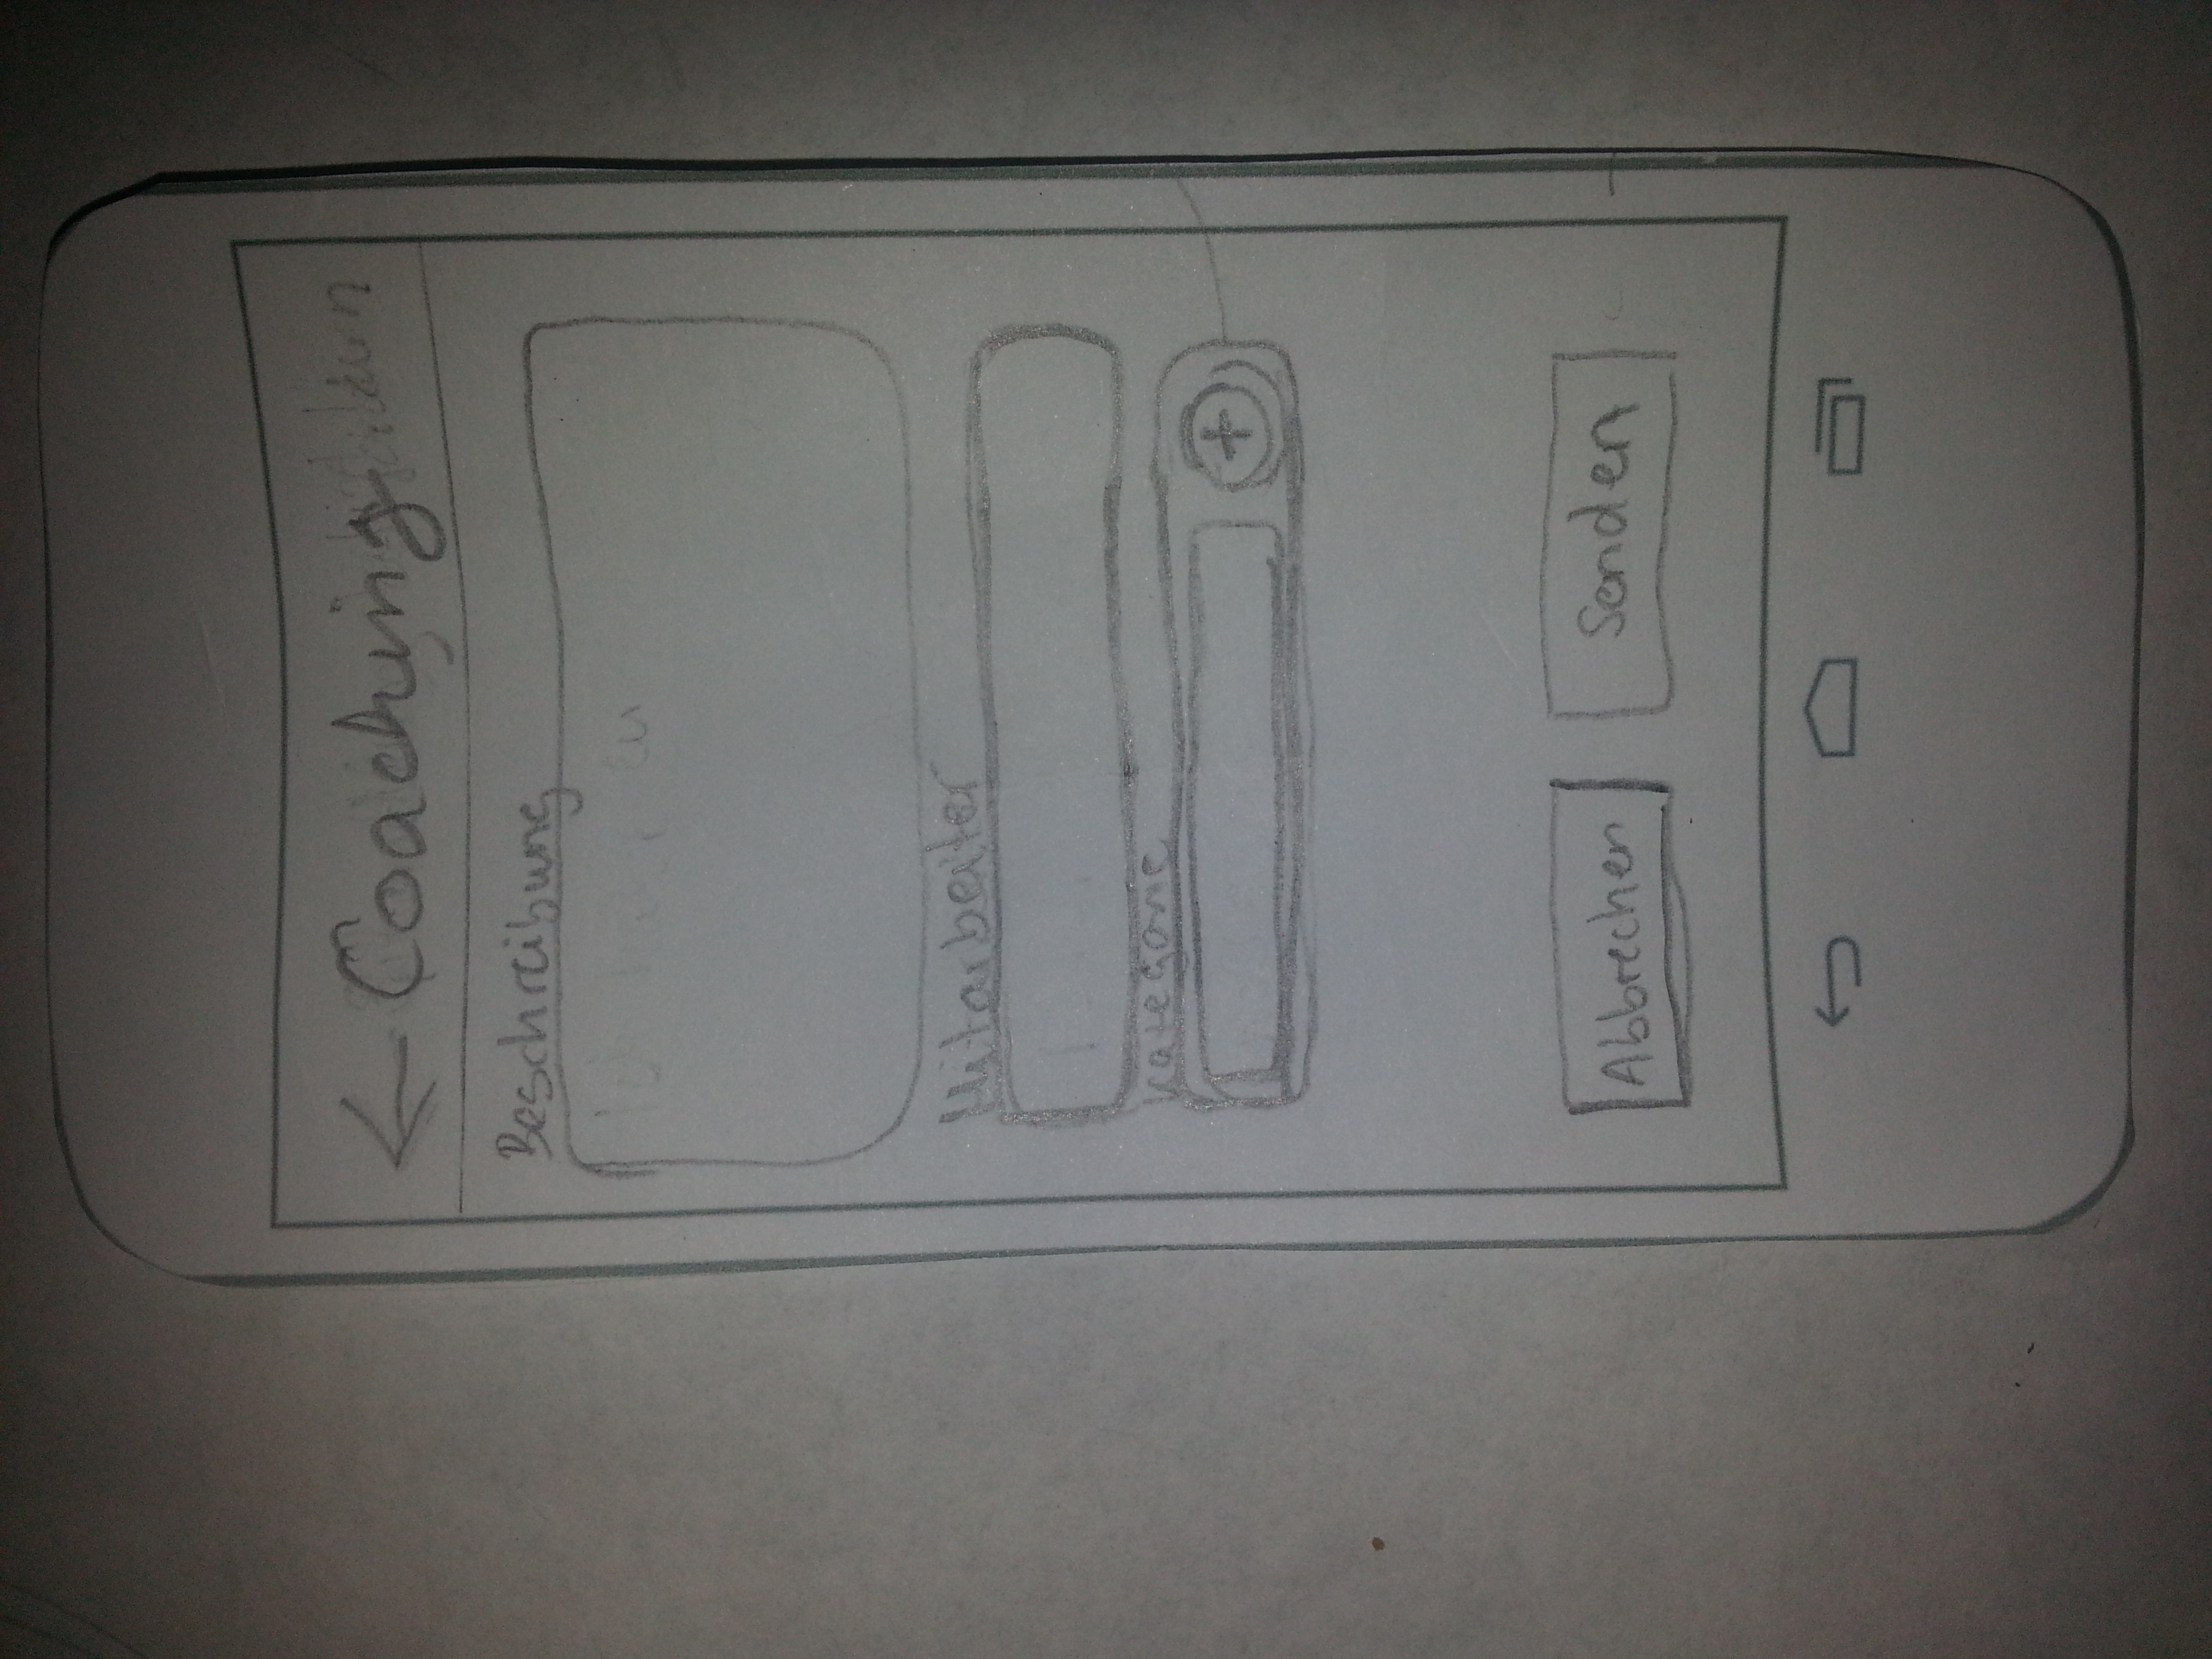 ← Coaching
Beschreibung
Mitarbeiter
Kategorie
+
Abbrechen Senden